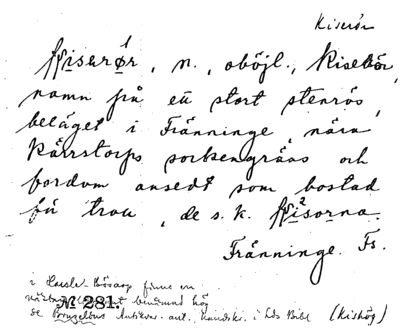 Kiserör
kjiserör, n., oböjl., Kiserör,
namn på ett stort stenrös,
beläget i Tränninge, nära
Kärrstorps sockengräns och
fordom ansedt som bostad
för troll, de s. k. kjisorna.
Fränninge. Fs.
i finns en
hög
No 281.
se Bruzelius Antikv. ant. handskr. i Lds Bibl (Kishög)